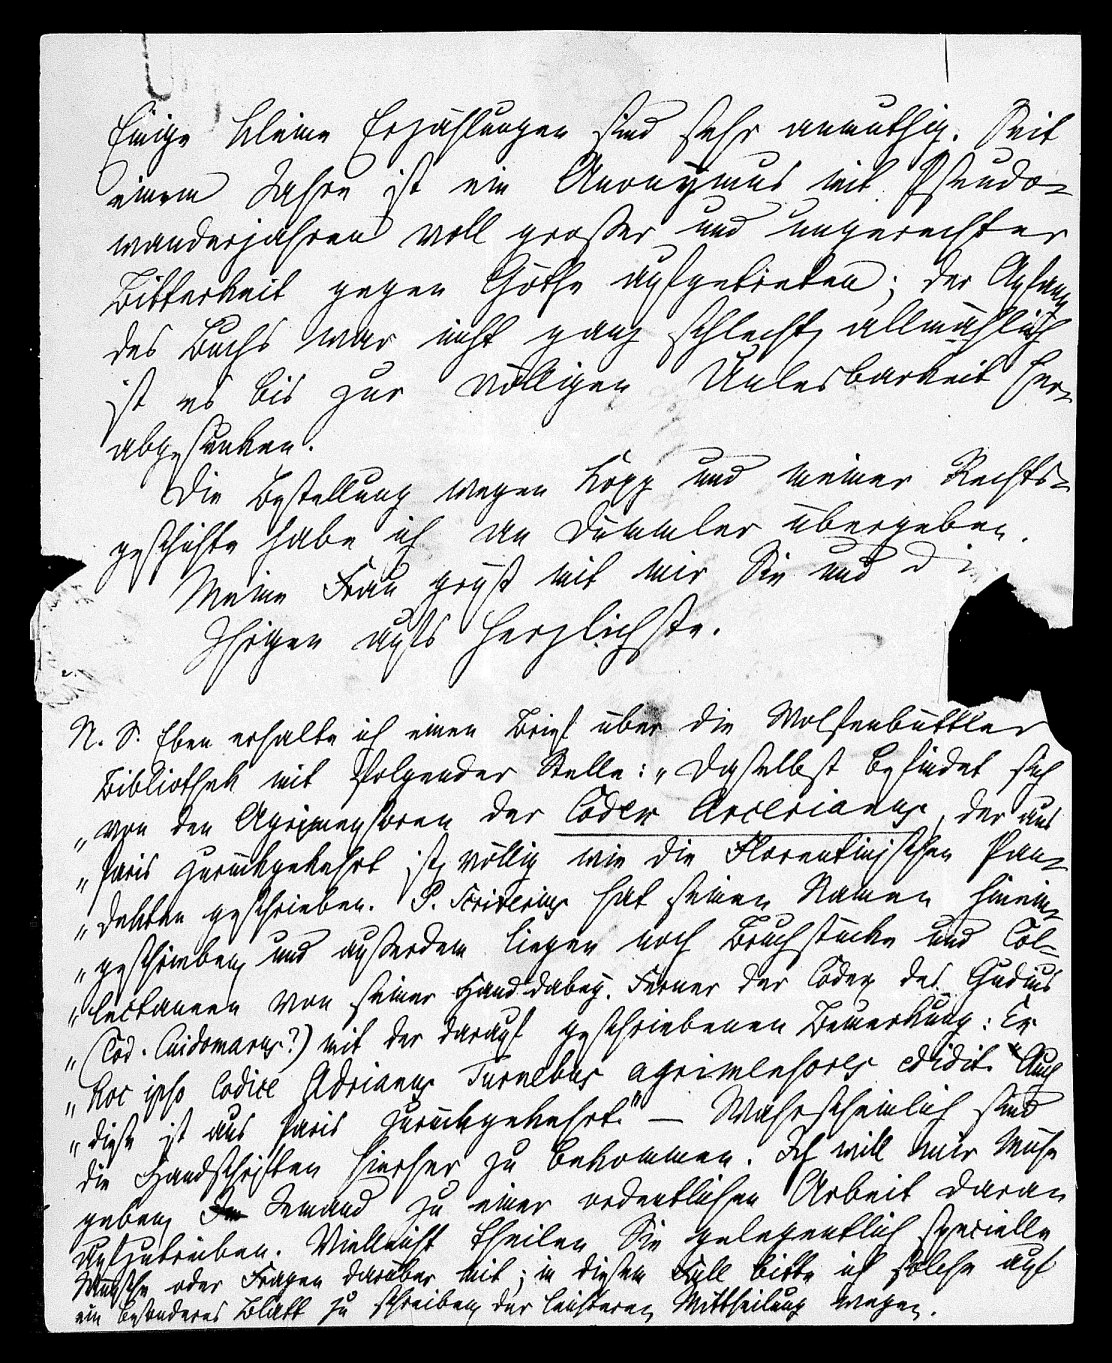 Einige kleine Erzählungen sind sehr anmuthig. Seit
einem Jahre ist ein Anonymus mit Pseudo-
wanderjahren voll großer und ungerechter
Bitterkeit gegen Göthe aufgetreten; der Anfang
des Buchs war nicht ganz schlecht, allmählich
ist es bis zur völligen Unlesbarkeit her-
abgesunken.
Die Bestellung wegen Kopp und meiner Rechts-
geschichte habe ich an Dümmler übergeben.
Meine Frau grüßt mit mir Sie und di
Ihrigen aufs herzlichste.
N. S. Eben erhalte ich einen Brief über die Wolfenbüttler
Bibliothek mit folgender Stelle: „Daselbst befindet sich
„von den Agrimensoren der Codex Arcerianus, der aus
„Paris zurückgekehrt ist, völlig wie die Florentinischen Pan-
„dekten geschrieben. P. Scriverius hat seinen Namen hinein-
„geschrieben, und außerdem liegen noch Bruchstücke und Col-
„lectaneen von seiner Hand dabey. Ferner der Codex des Gudius
„(Cod. Nidomarus?) mit der darauf geschriebenen Bemerkung: Ex
„hoc ipso Codice Adrianus Turnebus agrimensores edidit. Auch
„diese ist aus Paris zurückgekehrt." — Wahrscheinlich sind
die Handschriften hierher zu bekommen. Ich will mir Mühe
geben, Jemand zu einer ordentlichen Arbeit daran
aufzutreiben. Vielleicht theilen Sie gelegentlich specielle
Wünsche oder Fragen darüber mit; in diesem Fall bitte ich solche auf
ein besonderes Blatt zu schreiben, der leichteren Mittheilung wegen.